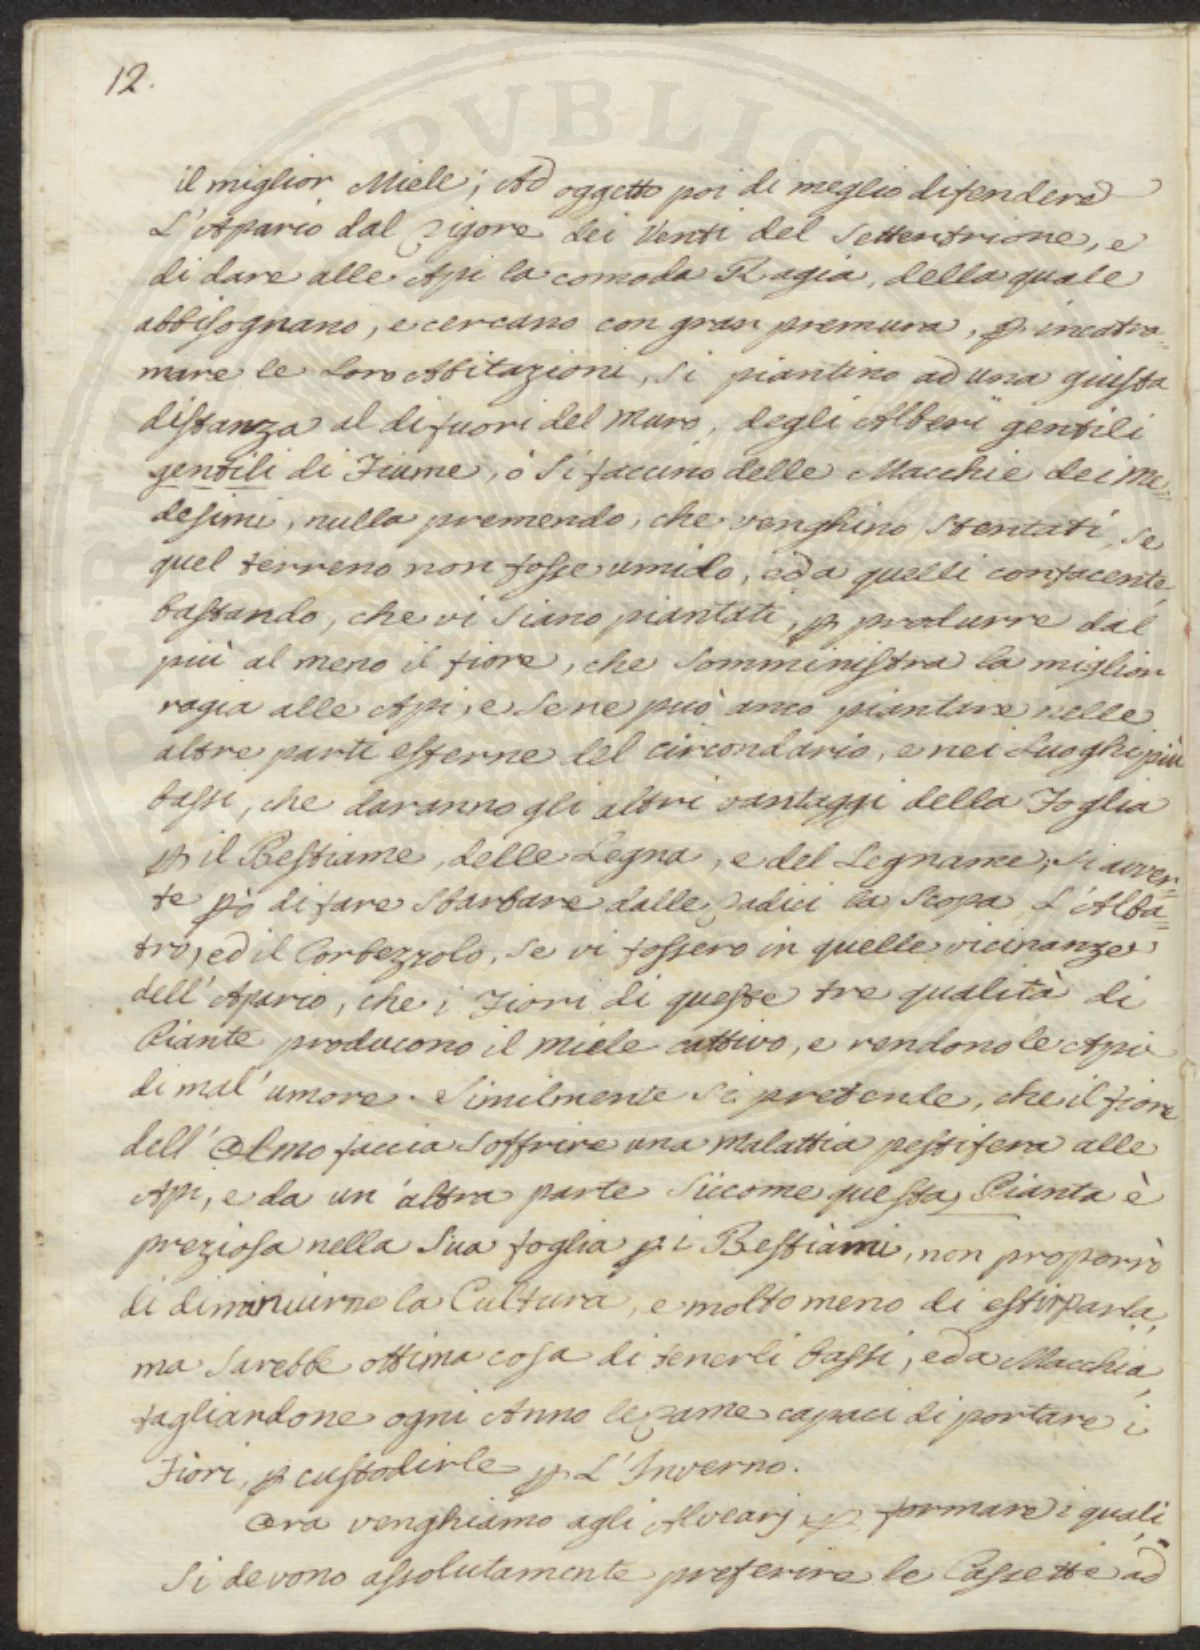 12.
il miglior Miele; Ad oggetto poi di meglio difendere
L'Apario dal rigore dei Venti del Settentrione, e
di dare alle Api la comoda Ragia, della quale
abbisognano, e cercano con gran premura, p incatra=
mare le Loro Abitazioni, Si piantino ad una giusta
distanza al di fuori del Muro, degli Alberi gentili
gentili di Fiume, ò Si faccino delle Macchie dei Me=
desimi, nulla premendo, che venghino Stentati, Se
quel terreno non fosse umido, ed a quelli confacente,
bastando, che vi Siano piantati, p produrre dal
più al meno il fiore, che Somministra la miglior
ragia alle Api, e Se ne può anco piantare nelle
altre parti esterne del circondario, e nei Luoghi più
bassi, che daranno gli altri vantaggi della Foglia
p il Bestiame, delle Legna, e del Legname; Si avver=
te pò di fare Sbarbare dalle radici la Scopa, L'Alba=
tro, ed il Corbezzolo, Se vi fossero in quelle vicinanze
dell'Apario, che i Fiori di queste tre qualità di
Piante producono il Miele cattivo, e rendono le Api
di mal'umore. Similmente Si pretende, che il fiore
dell'Olmo faccia Soffrire una Malattia pestifera alle
Api, e da un'altra parte Siccome questa Pianta è
preziosa nella Sua foglia p i Bestiami, non proporrò
di diminuirne la Cultura, e molto meno di estirparla,
ma Sarebbe ottima cosa di tenerli bassi, ed a Macchia,
tagliandone ogni Anno le rame capaci di portare i
Fiori, p custodirle p L'Inverno.
Ora venghiamo agli Alvearj p formare i quali
Si devono assolutamente preferire le Cassette ad